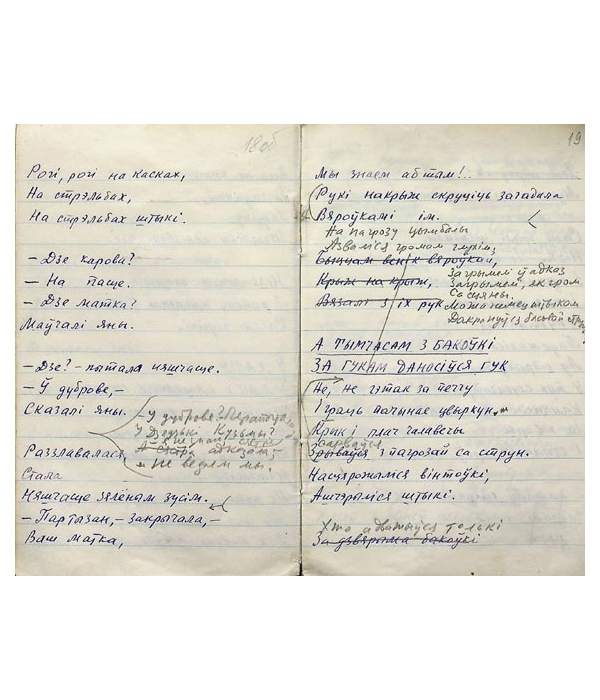 18об
Рогі, рогі на касках,
На стрэльбах,
На стрэльбах штыкі.
– Дзе карова?
– На паще.
– Дзе матка?
Маўчалі яны.
– Дзе? – пытала няшчаще.
– Ў дуброве, –
Сказалі яны.
– У дуброве?
У дзядзькі Кузьмы?
А адказам –
– Не ведем мы.
Раззлавалася
Стала
Няшчаще зялёным зусім.
– Партызан, – закрычала, –
Ваш матка,
19
Мы знаем аб том!..
Рукі накрыж скруціць загадала
Вяроўкамі ім.
На пагрозу цымбалы
Азваліся громам глухім,
Быццам венік вяроўкай,
Крыж на крыж,
Вязалі з іх рук
Загрымелі ў адказ
Загрымелі, як гром
Са сцяны.
Можа немец штыком
Дакрануўся
А ТЫМЧАСАМ З БАКОЎКІ
ЗА ГУКАМ ДАНОСІЎСЯ ГУК
Не, не гэтак за печчу
Іграць пачынае цвыркун.
Крык і плач чалавечы
Зарваўся
Зрываўся з пагрозай са струн.
Насцярожыліся вінтоўкі,
Ашчэрыліся штыкі.
Хто адважыўся толькі
За дзвярыма бакоўкі